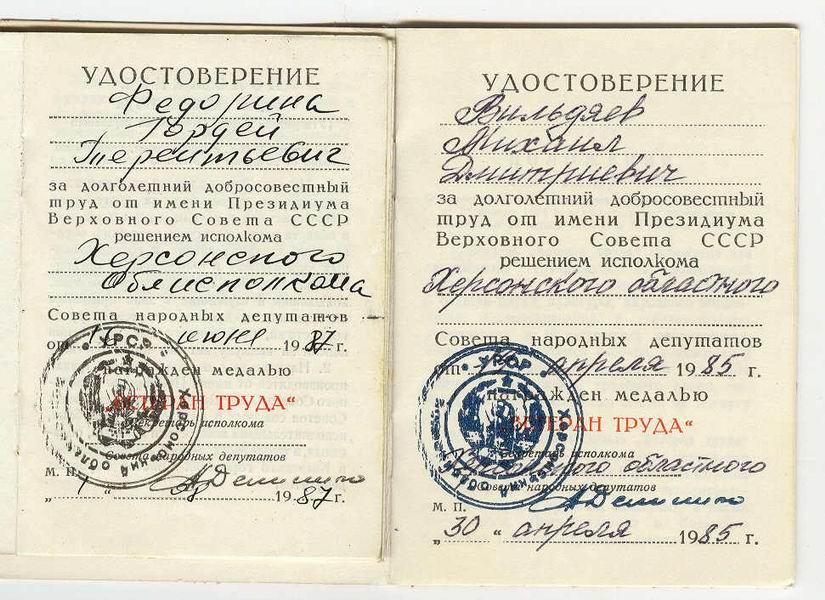 УДОСТОВЕРЕНИЕ
Федорина
Гордей
Терентьевич
за долголетний добросовестный
труд от имени Президиума
Верховного Совета СССР
решением исполкома
Херсонского
Облисполкома
Совета народных депутатов
от июня 1987 г.
награжден медалью
„ВЕТЕРАН ТРУДА“
Секретарь исполкома
Совета народных депутатов
М. П.
1987 г.
УРСР
УДОСТОВЕРЕНИЕ
Вильдяев
Михаил
Дмитриевич
за долголетний добросовестный
труд от имени Президиума
Верховного Совета СССР
решением исполкома
Херсонского областного
Совета народных депутатов
от апреля 1985 г.
награжден медалью
„ВЕТЕРАН ТРУДА“
Секретарь исполкома
Херсонского областного
Совета народных депутатов
М. П.
„30“ апреля 1985 г.
УРСР